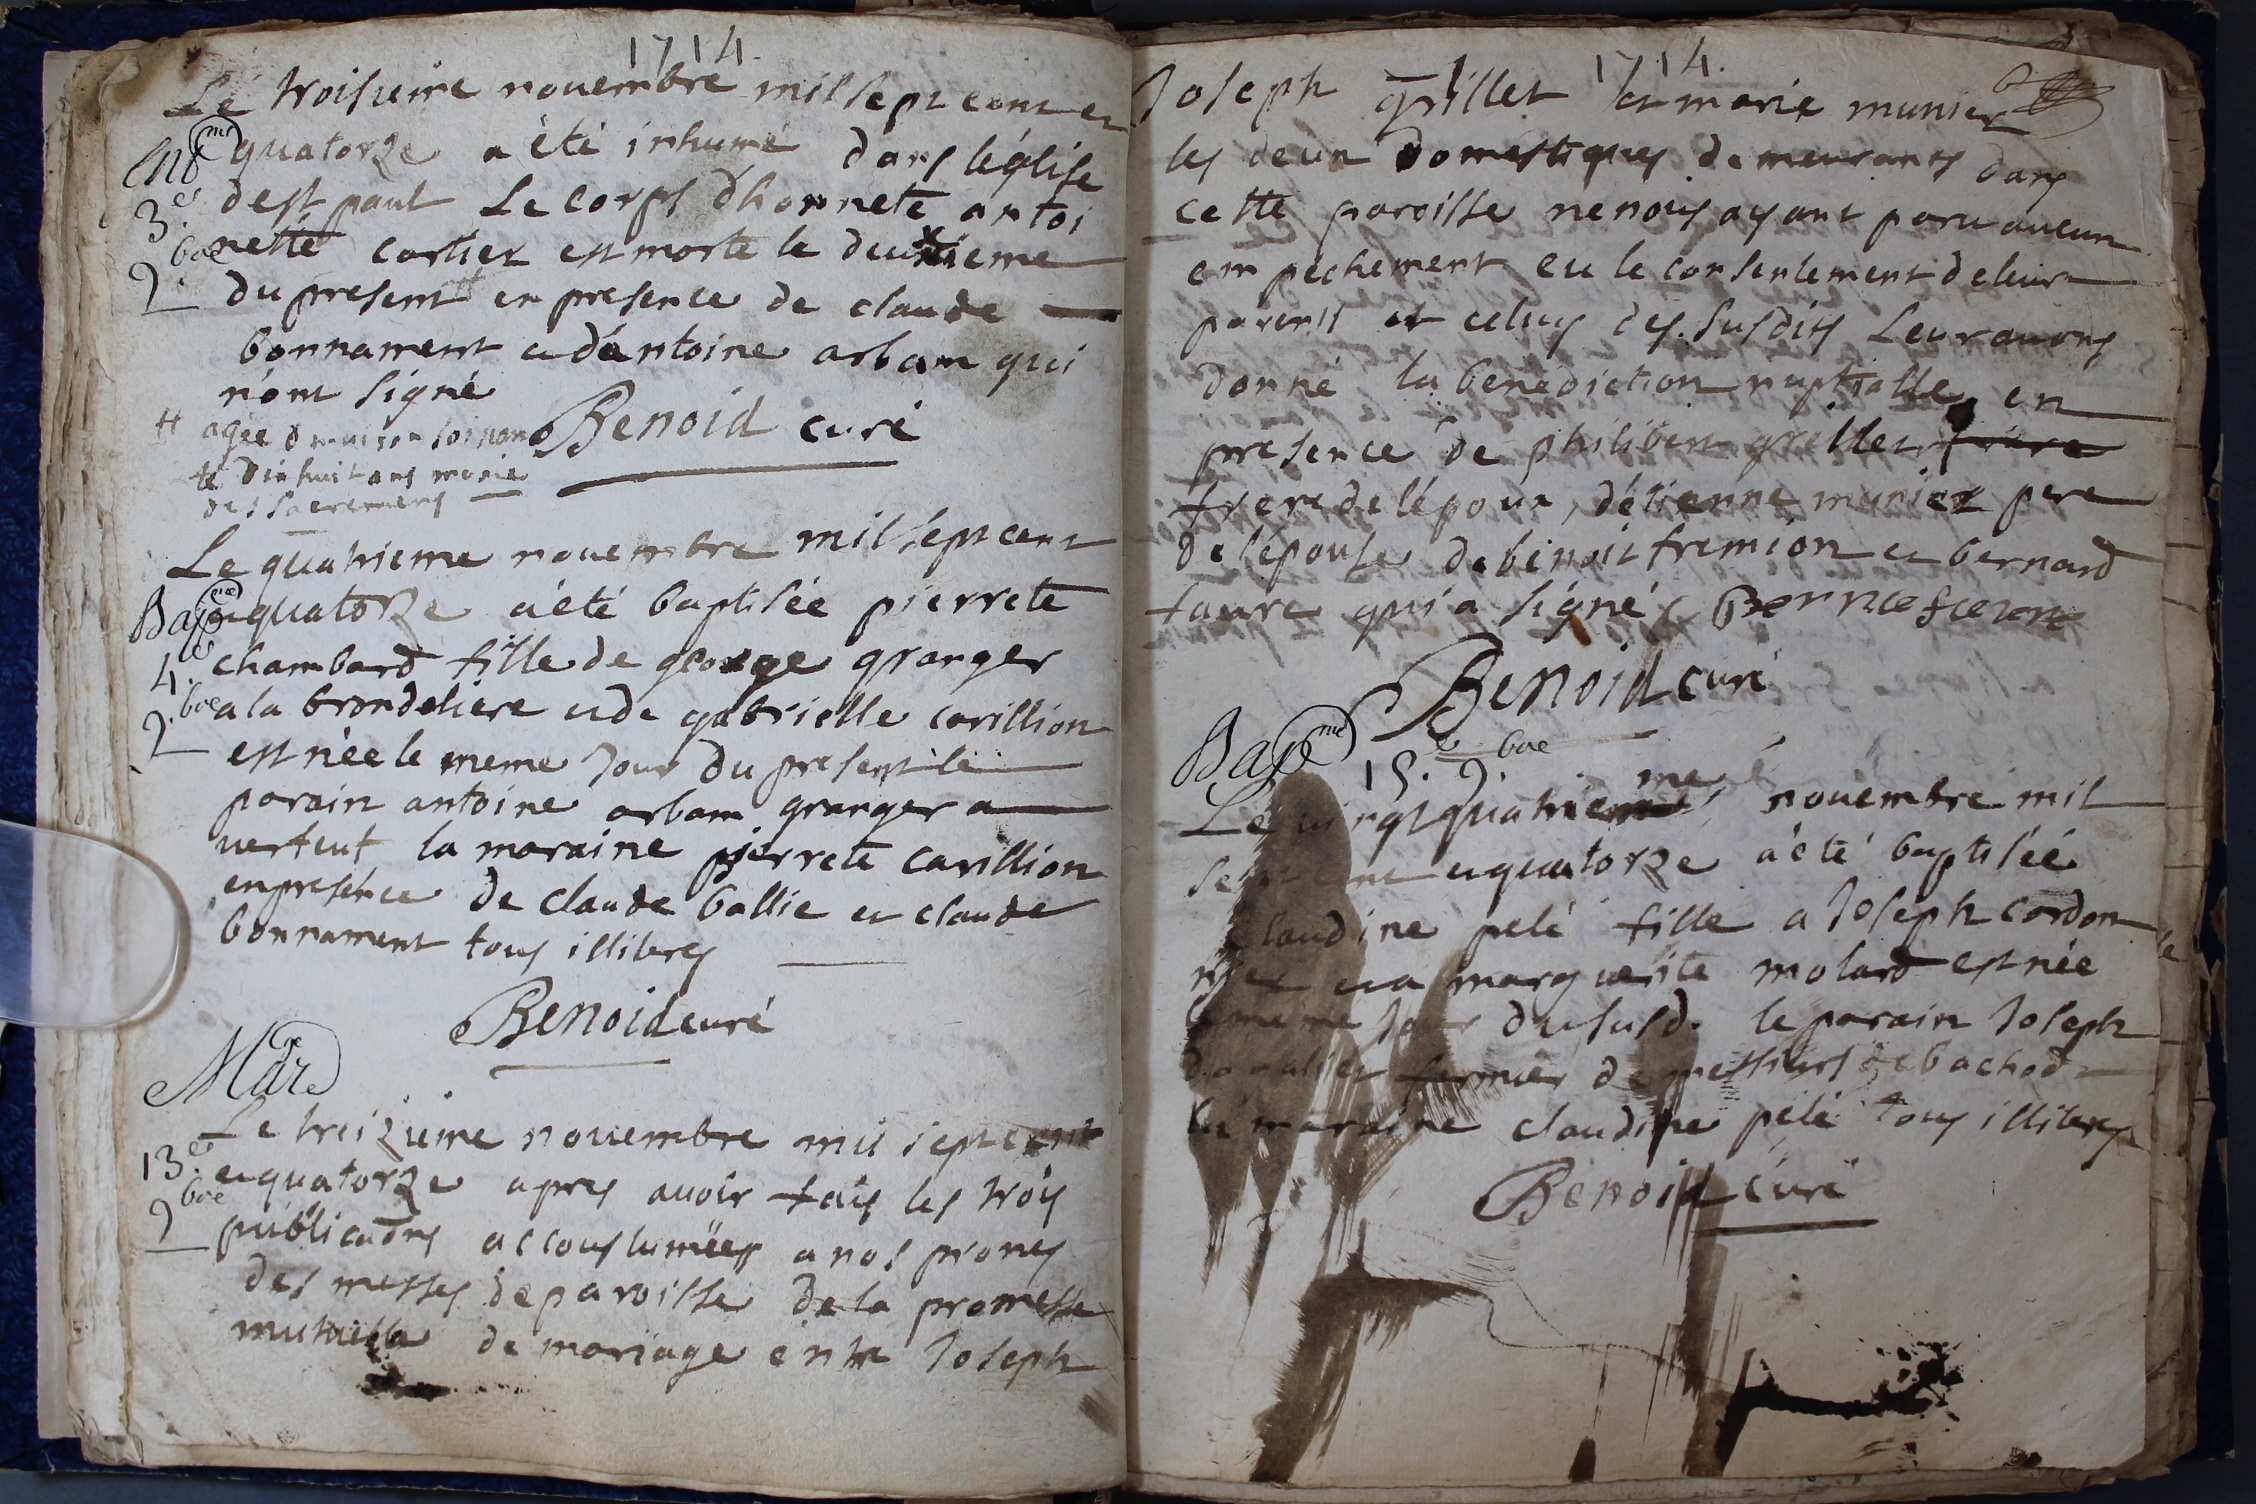 1714.
Le troisieme novembre mil sept cent et
quatorze a été inhumé dans léglise
dest paul Le corps dhonnete antoi
nette cartier est morte le deuxieme
du present # en presence de claude
bonnament et dantoine arbam qui
nont signé
Benoid curé
# agée denviron soixante
# dixhuit ans munie
des sacremens
Ent
3e
9bre
Le quatrieme novembre mil sept cent
et quatorze a été baptisée pierrete
chambard fille de george granger
a la brondeliere et de gabrielle carillion
est née le meme jour du present le
parain antoine arbam granger a
vertfeut la maraine pierrete carillion
en presence de claude ballie et claude
bonnament tous illiterés
Benoid curé
Bap me
4e
9bre
Mar
Le treizieme novembre mil sept cent
et quatorze apres avoir fait les trois
publicaons accoustumées a nos prones
des messes de paroisse de la promesse
mutuelle de mariage entre Joseph
13e
9bre
1714.
Joseph grillet et marie munier
les deux domestiques demeurants dans
cette paroisse ne nous ayant paru aucun
empechement eu le consentement de leurs
parents et celuy des susdits Leur avons
donné la benediction nuptialle en
presence de philibert grillet
frere de lépoux, détienne munier pere
de lépouse de benoit fremion et bernard
favre qui a signé
Benoid curé
Bap me
15e 9bre
Le vingt quatrieme novembre mil
sept cent et quatorze a été baptisée
claudine pelé fille a Joseph cordon
nier et a marguerite molard est née
le meme jour du susd. le parain Joseph
fermier de messieurs de bachod
la maraine claudine pelé tous illiterés
Benoid curé